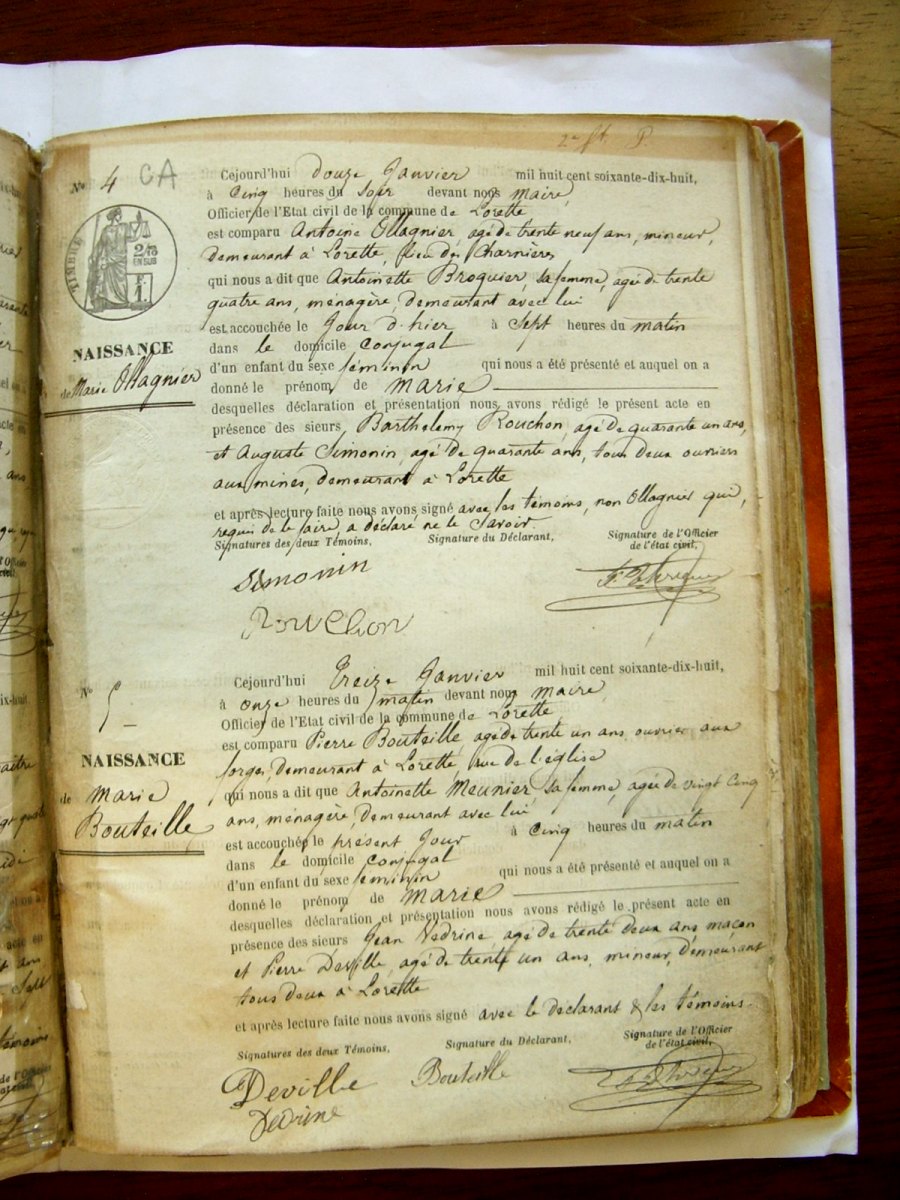 2e ft. P.
No 4 CA
TIMBRE
2/10
EN SUS
F.
1
NAISSANCE
de Marie Ollagnier
Cejourd'hui douze Janvier mil huit cent soixante-dix-huit,
à Cinq heures du Soir devant nous Maire,
Officier de l'Etat civil de la commune de Lorette
est comparu Antoine Ollagnier, agé de trente neuf ans, mineur,
demeurant à Lorette, lieu des Charnières
qui nous a dit que Antoinette Broquier, sa femme, agée de trente
quatre ans, ménagère, demeurant avec lui
est accouchée le Jour d'hier à Sept heures du matin
dans le domicile Conjugal
d'un enfant du sexe féminin qui nous a été présenté et auquel on a
donné le prénom de Marie
desquelles déclaration et présentation nous avons rédigé le présent acte en
présence des sieurs Barthelemy Rouchon, agé de quarante un ans,
et Auguste Simonin, agé de quarante ans, tous deux ouvriers
aux mines, demeurant à Lorette
et après lecture faite nous avons signé avec les témoins, non Ollagnier qui,
requis de le faire, a déclaré ne le Savoir
Signatures des deux Témoins, Signature du Déclarant, Signature de l'Officier
de l'état civil,
Simonin
Rouchon
No 5
NAISSANCE
de Marie
Bouteille
Cejourd'hui Treize Janvier mil huit cent soixante-dix-huit,
à onze heures du matin devant nous Maire
Officier de l'Etat civil de la commune de Lorette
est comparu Pierre Bouteille, agé de trente un ans, ouvrier aux
forges, demeurant à Lorette, rue de l'église
qui nous a dit que Antoinette Meunier, sa femme, agée de vingt Cinq
ans, ménagère, demeurant avec lui
est accouchée le présent Jour à Cinq heures du matin
dans le domicile Conjugal
d'un enfant du sexe féminin qui nous a été présenté et auquel on a
donné le prénom de Marie
desquelles déclaration et présentation nous avons rédigé le présent acte en
présence des sieurs Jean Vedrine agé de trente deux ans maçon
et Pierre Deville, agé de trente un ans, mineur, demeurant
tous deux à Lorette
et après lecture faite nous avons signé avec le déclarant & les témoins.
Signatures des deux Témoins, Signature du Déclarant, Signature de l'Officier
de l'état civil,
Deville Bouteille
Vedrine